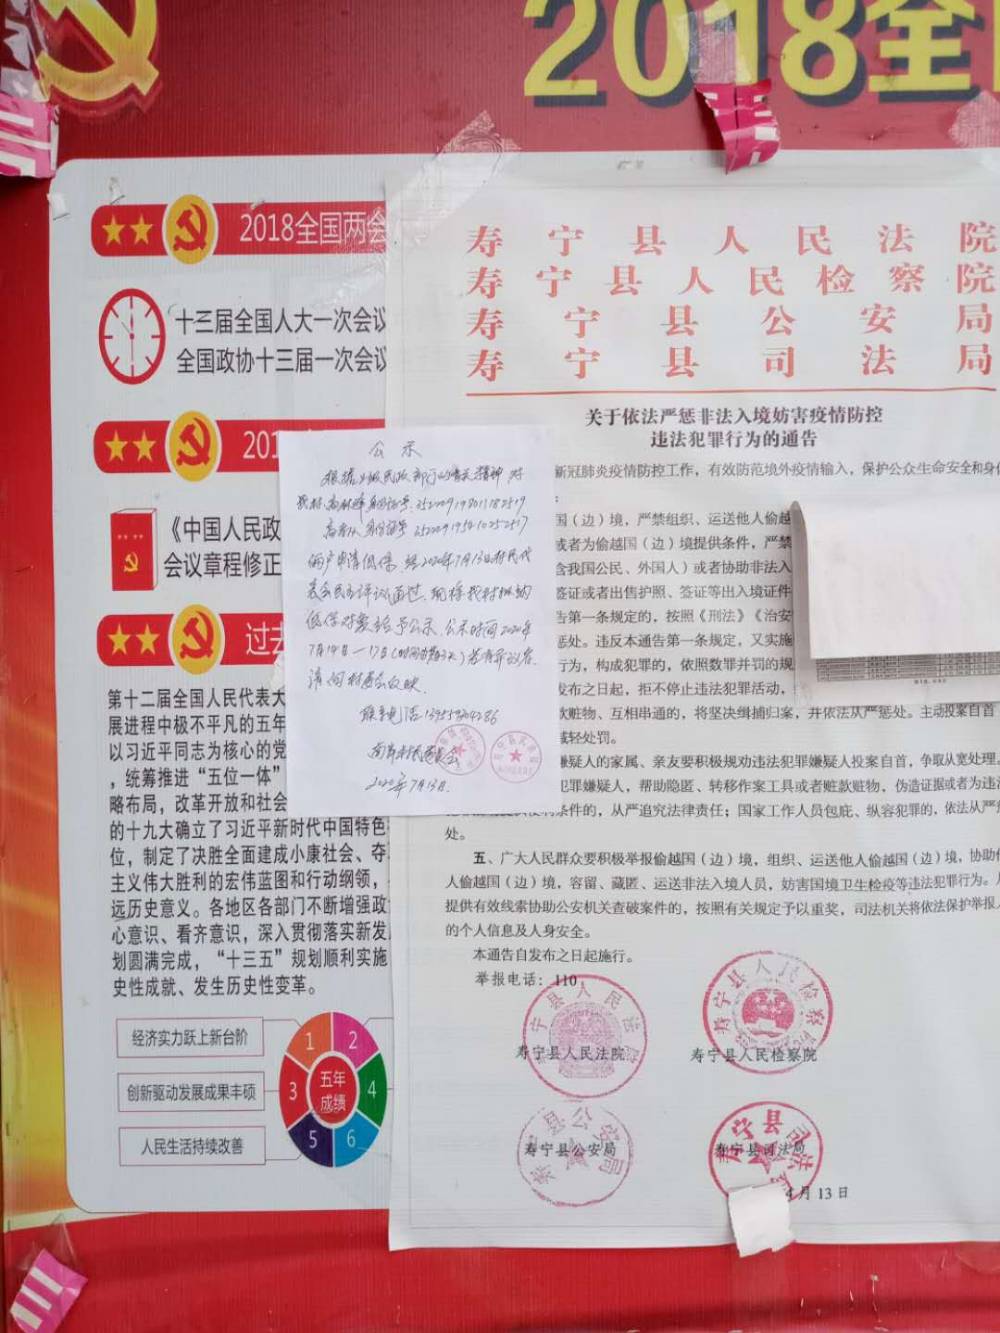 2018全
2018全国两会
十三届全国人大一次会议
全国政协十三届一次会议
201
《中国人民政
会议章程修正
过去
第十二届全国人民代表大
展进程中极不平凡的五年
以习近平同志为核心的党
，统筹推进“五位一体”
略布局，改革开放和社会
的十九大确立了习近平新时代中国特色
位，制定了决胜全面建成小康社会、夺
主义伟大胜利的宏伟蓝图和行动纲领，
远历史意义。各地区各部门不断增强政
心意识、看齐意识，深入贯彻落实新发
划圆满完成，“十三五”规划顺利实施
史性成就、发生历史性变革。
经济实力跃上新台阶
创新驱动发展成果丰硕
人民生活持续改善
1
2
3
4
5
6
五年
成绩
公示
根据上级民政部门的有关精神 对
我村
身份证号
两户申请低保 经2020年7月13日村民代
表会民主评议通过，现将我村拟纳
低保对象给予公示，公示时间2020年
7月14日—17日
若有异议者
请向村委会反映
联系电话
村民委员会
2020年7月13日
寿宁县人民法院
寿宁县人民检察院
寿宁县公安局
寿宁县司法局
关于依法严惩非法入境妨害疫情防控
违法犯罪行为的通告
新冠肺炎疫情防控工作，有效防范境外疫情输入，保护公众生命安全和身
：
国（边）境，严禁组织、运送他人偷越
或者为偷越国（边）境提供条件，严禁
含我国公民、外国人）或者协助非法入
签证或者出售护照、签证等出入境证件
告第一条规定的，按照《刑法》《治安
惩处。违反本通告第一条规定，又实施
行为，构成犯罪的，依照数罪并罚的规
发布之日起，拒不停止违法犯罪活动，
款赃物、互相串通的，将坚决缉捕归案，并依法从严惩处。主动投案自首
减轻处罚。
嫌疑人的家属、亲友要积极规劝违法犯罪嫌疑人投案自首，争取从宽处理。
犯罪嫌疑人，帮助隐匿、转移作案工具或者赃款赃物，伪造证据或者为违
条件的，从严追究法律责任；国家工作人员包庇、纵容犯罪的，依法从严
处。
五、广大人民群众要积极举报偷越国（边）境，组织、运送他人偷越国（边）境，协助
人偷越国（边）境，容留、藏匿、运送非法入境人员，妨害国境卫生检疫等违法犯罪行为。
提供有效线索协助公安机关查破案件的，按照有关规定予以重奖，司法机关将依法保护举报
的个人信息及人身安全。
本通告自发布之日起施行。
举报电话：110
寿宁县人民法院
寿宁县人民检察院
寿宁县公安局
寿宁县司法局
4月13日